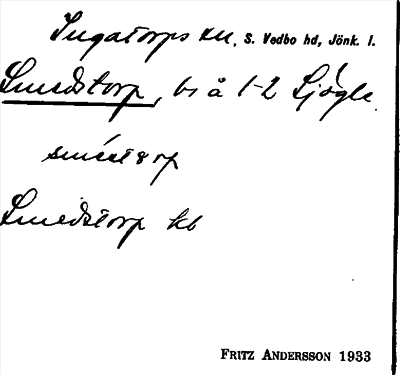 Ingatorps sn, S. Vedbo hd, Jönk. l.
Smedstorp, by å 1-2 Sjögle
smístorp
Smedstorp kb
FRITZ ANDERSSON 1933